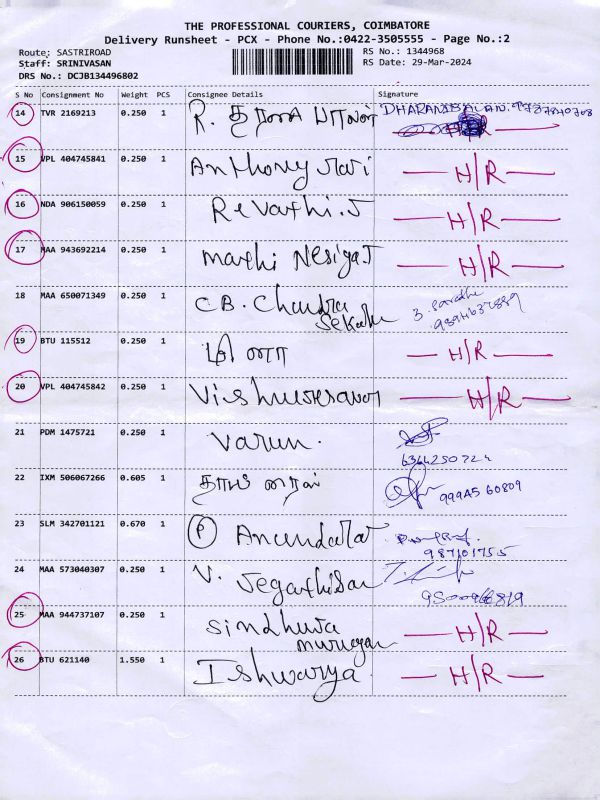 THE PROFESSIONAL COURIERS, COIMBATORE
Delivery Runsheet - PCX - Phone No.:0422-3505555 - Page No.:2
Route: SASTRIROAD
Staff: SRINIVASAN
DRS No.: DCJB134496802
RS No.: 1344968
RS Date: 29-Mar-2024
S No Consignment No Weight PCS Consignee Details Signature
14 TVR 2169213 0.250 1 R. DHARANIBALAN. H/R
15 VPL 404745841 0.250 1 Anthony H/R
16 NDA 906150059 0.250 1 Revathi.J H/R
17 MAA 943692214 0.250 1 Mathi Nesiga.J H/R
18 MAA 650071349 0.250 1 C.B. Chandra
Sekar
19 BTU 115512 0.250 1 H/R
20 VPL 404745842 0.250 1 H/R
21 PDM 1475721 0.250 1 Varun.
22 IXM 506067266 0.605 1 99945 60809
23 SLM 342701121 0.670 1 P
24 MAA 573040307 0.250 1 V.
25 MAA 944737107 0.250 1 Sindhuja
Murugan H/R
26 BTU 621140 1.550 1 Ishwarya H/R